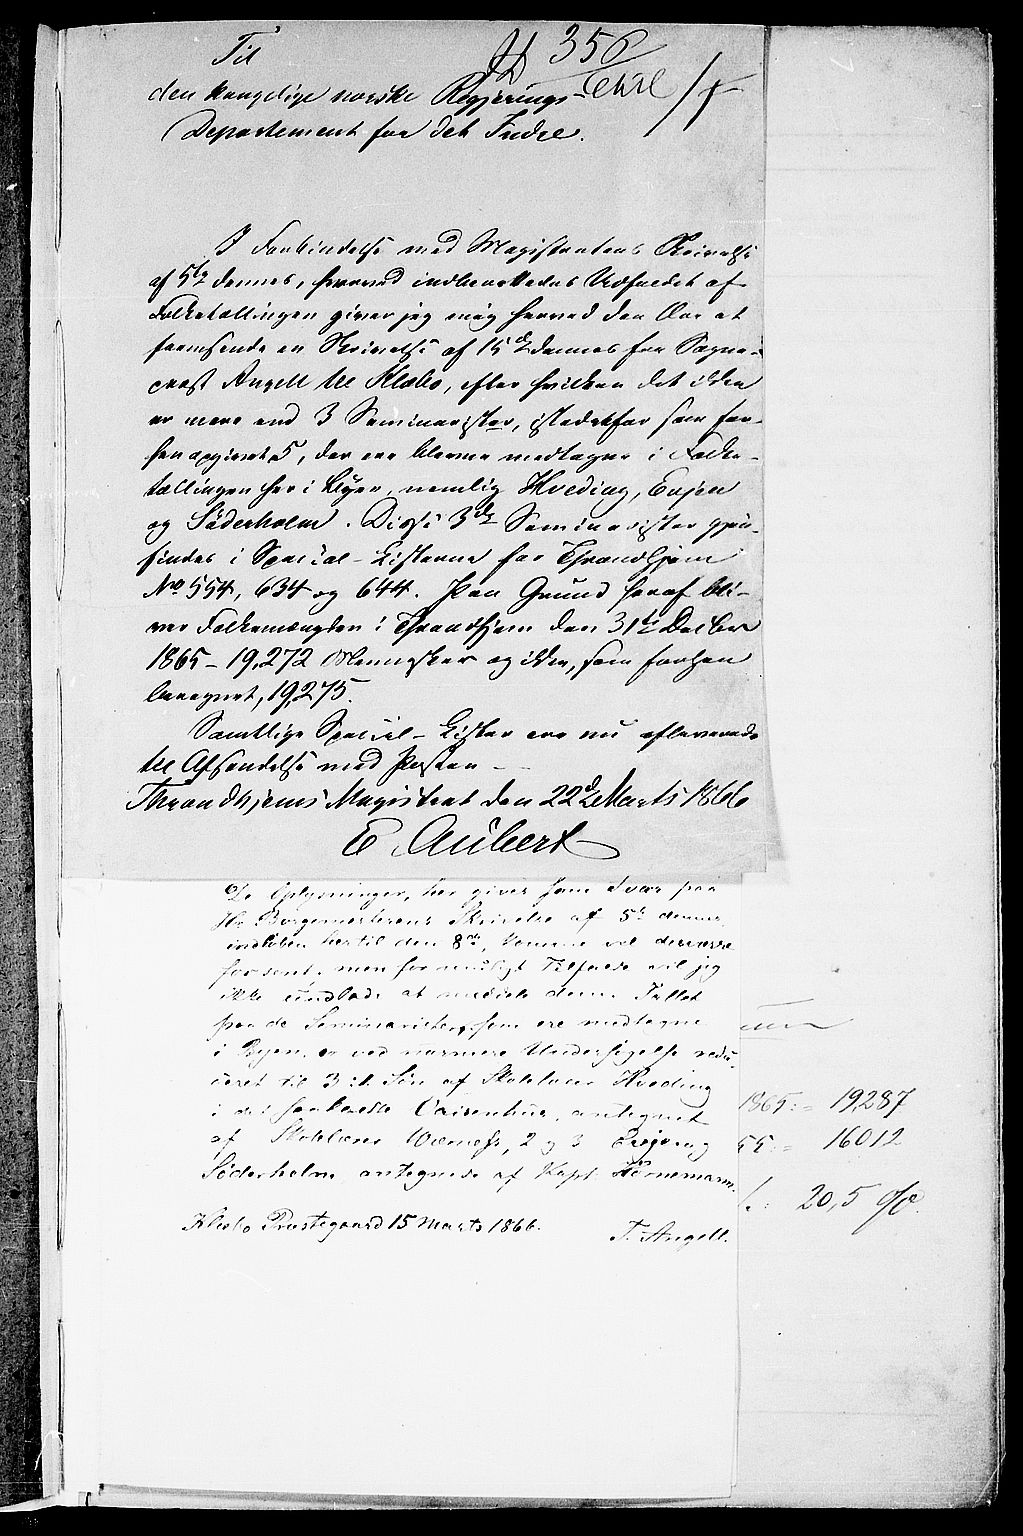 Til
JD 356
den kongelige norske Regjerings-
Departement for det Indre.
I Forbindelse med Magistratens Skrivelse
af 5te dennes, hvorved indberettedes Udfaldet af
Folketællingen giver jeg mig herved den Ære at
fremsende en Skrivelse af 15de dennes fra Sogne-
præst Angell til Klæbo, efter hvilken det ikke
er mere end 3 Seminarister, istedetfor som for-
hen opgivet 5, der ere blevne medtagne i Folke-
tællingen her i Byen, nemlig Hveding, Enjen
og Söderholm. Disse 3de Seminarister gjen-
findes i Special-Listerne for Throndhjem
No 554, 634 og 644. Paa Grund heraf bli-
ver Folkemængden i Throndhjem den 31te Decbr
1865 - 19,272 Mennesker og ikke, som forhen
beregnet, 19,275.
Samtlige Special-Lister ere nu afleverede
til Afsendelse med Posten -
Throndhjems Magistrat den 22de Marts 1866
E Aubert
De Oplysninger, her gives som Svar paa
Hr Borgemesterens Skrivelse af 5te dennes
indløben hertil den 8de, komme vel desværre
for sent, men for muligt Tilfælde vil jeg
ikke undlade at meddele dem. Tallet
paa de Seminarister, som ere medtagne
i Byen, er ved nærmere Undersøgelse redu-
ceret til 3: 1. Søn af Skolelærer Hveding
i det forbenede Vaisenhus, antegnet
af Skolelærer Wærness, 2 og 3 og
Söderholm, antegnede af Kapt. Hornemann.
Klæbo Præstegaard 15 Marts 1866.
T. Angell.
1865: = 19287
55: = 16012
20,5 %